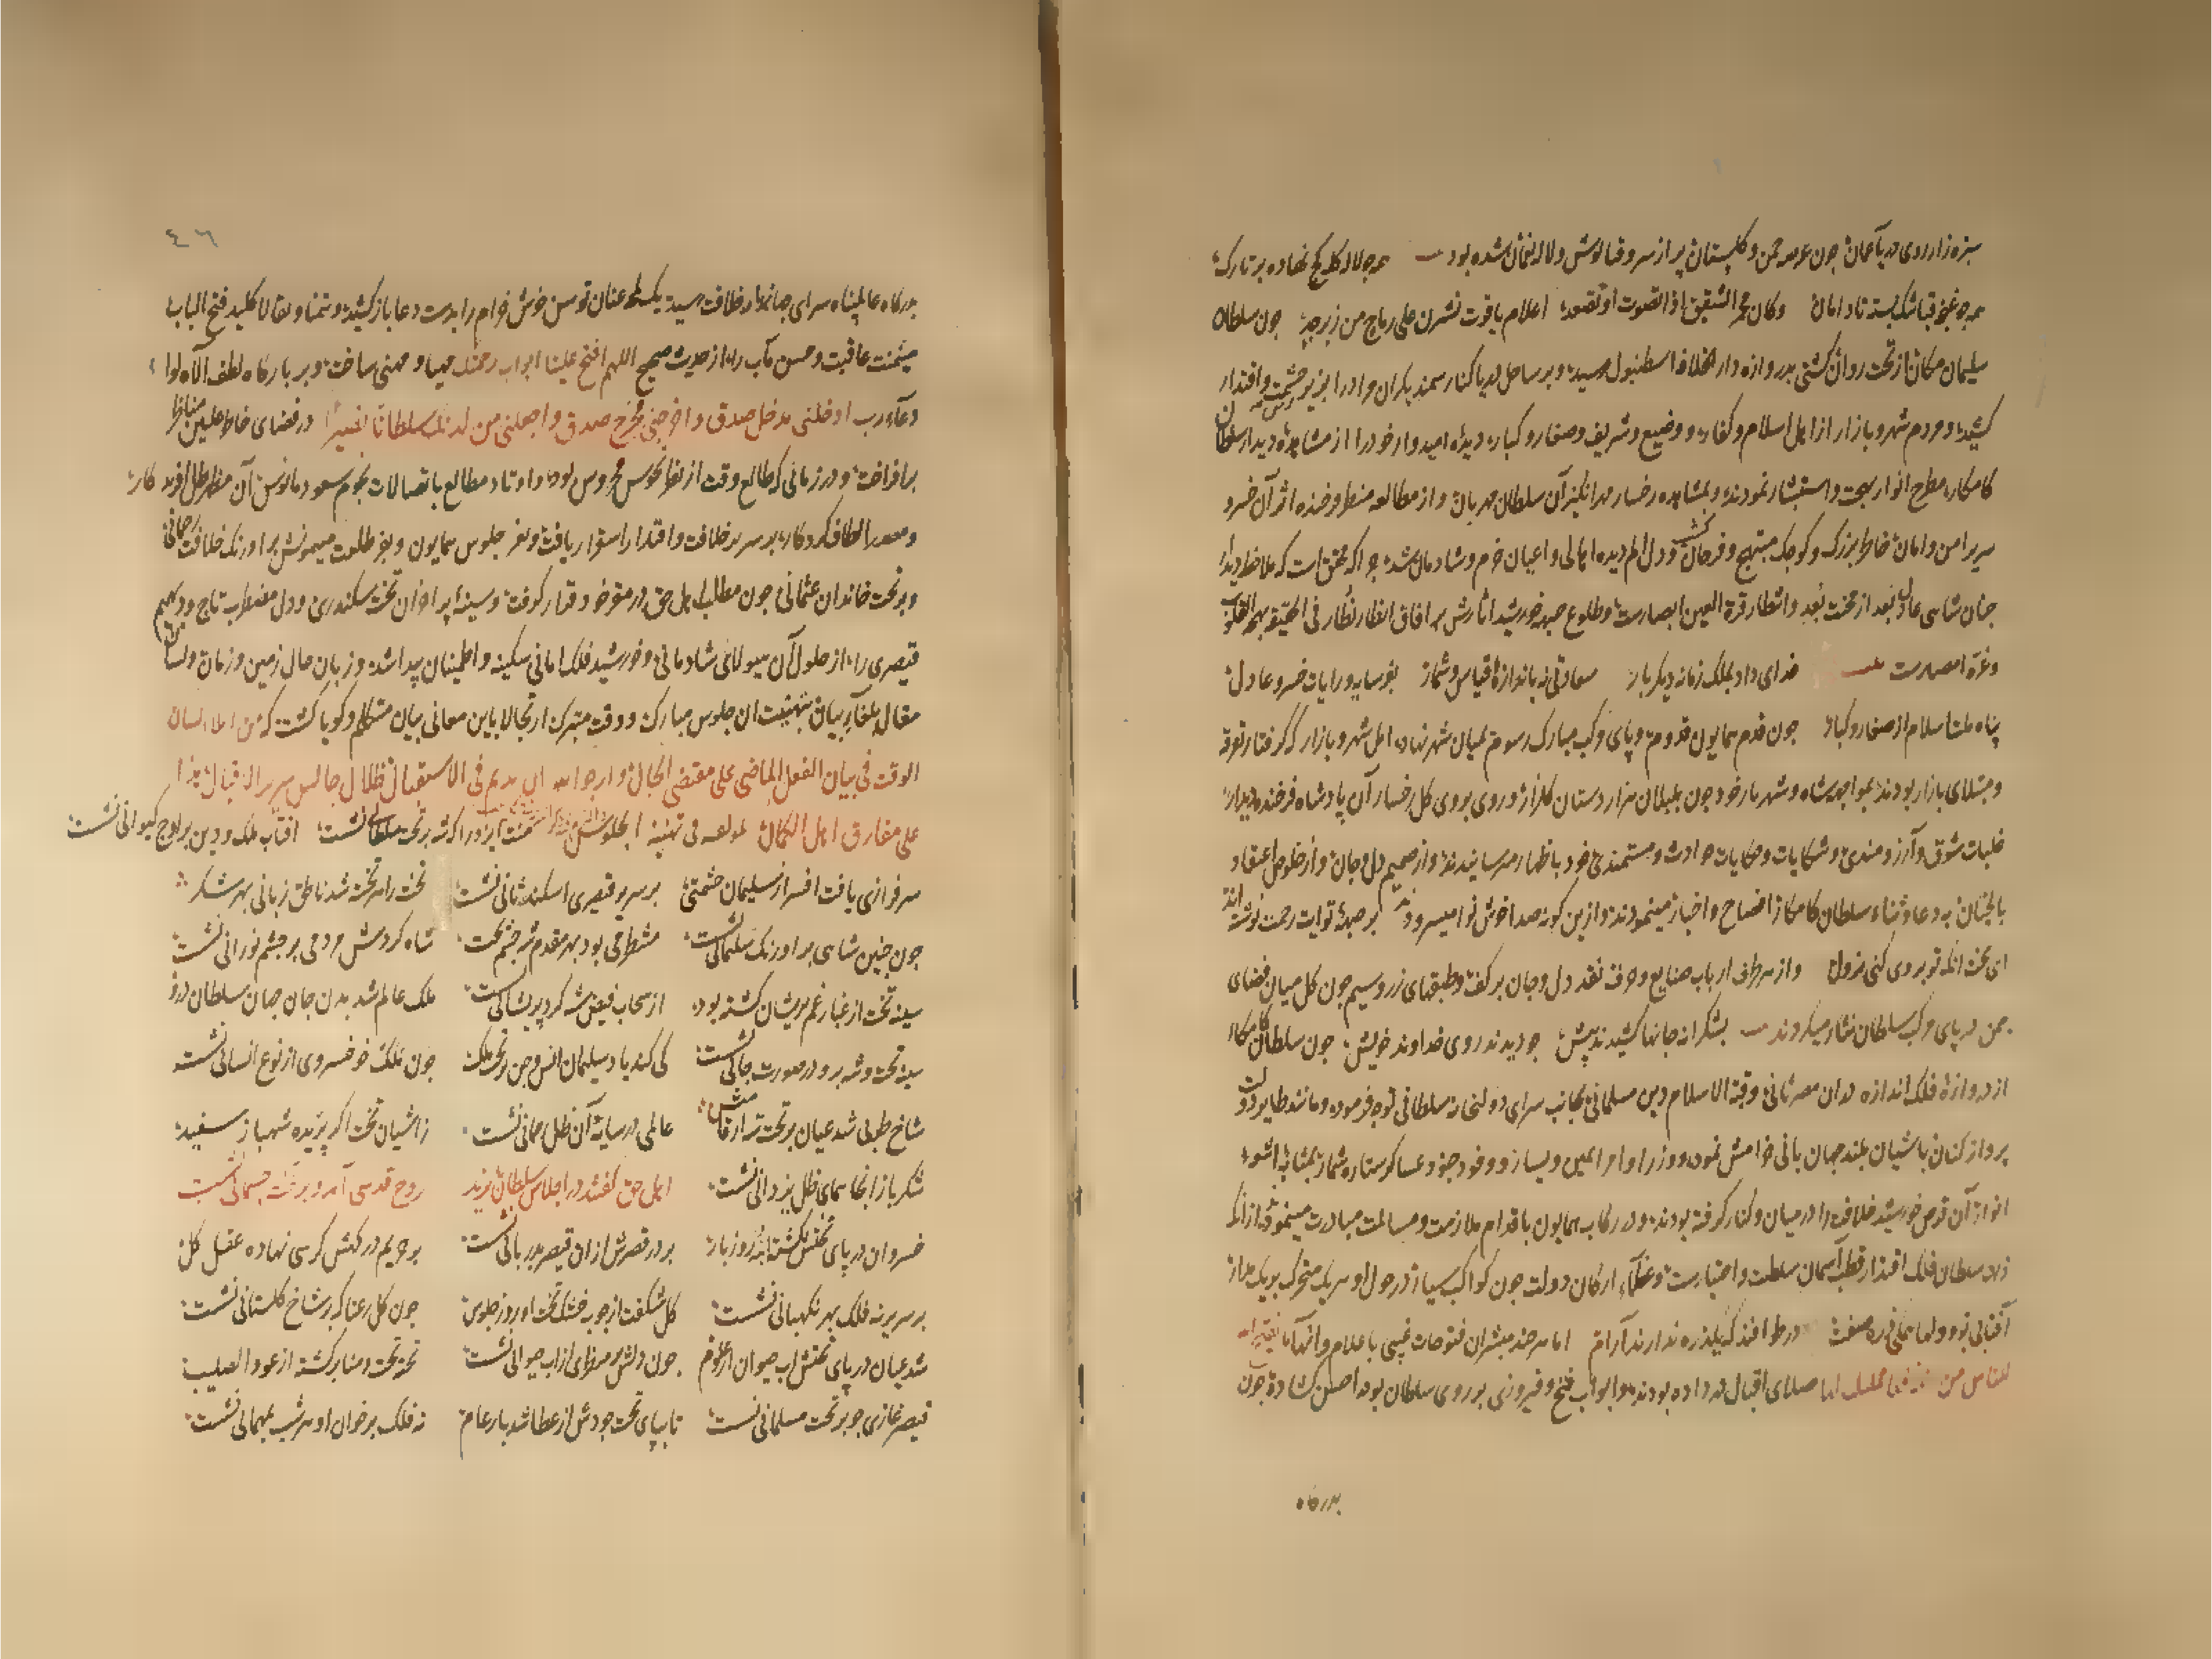 سبزه زار روی دریا عمان چون عرصه چمن و گلستان پر از سرو قبا پوش و لاله نعمان شده بود همه جو لاله کله کج نهاده بر تارک
همه جو غنچه قبا تنگ بسته تا دامان وکان محمر الشقیق اذا تصوب او تصعد اعلام یاقوت نشرن علی رماح من زبرجد چون سلطان
سلیمان مکان از تخت روان کشتی بدروازه دار الخلافه اسطنبول رسید و بر ساحل دریا کنار سمند
کشید و مردم شهر و بازار از اهل اسلام و کفار و وضیع و شریف و صغار و کبار دیده امیدوار خود را از مشاهده دیدار سلطان
کامکار مطرح انوار بهجت و استبشار نمودند و بمشاهده رخسار مهر انگیز آن سلطان مهربان و از مطالعه منظر فرخنده اثر آن خسرو
سریر امن و امان خاطر بزرک و کوچک مبتهج و فرحان کشت و دل الم دیده اهالی و اعیان خرم و شادمان شد چرا که محقق است که ملاحظه دیدار
چنان شاهی عادل بعد از محنت بعد و انتظار قرة العین ابصارست و طلوع خورشید آثارش بر افاق انظار نظار فی الحقیقه
و غره امصارست خدای داد بملک زمانه دیکر بار سعادتی نه باندازه قیاس و شمار بفر سایه و رایات خسرو عادل
پناه ملت اسلام از صغار و کبار چون قدم همایون قدوم و پای مرکب مبارک رسوم بمیان شهر نهاد اهل شهر و بازار که گرفتار تفرقه
و مبتلای بازار بودند بمواجهه شاه و شهریار خود چون بلبلان هزار دستان گلزار روی بروی گل رخسار آن پادشاه فرخنده دیدار
غلبات شوق و آرزومندی و شکایات و حکایات حوادث و مستمندی خود باظهار میرسانیدند و از صمیم دل و جان و از خلوص اعتقاد
بالجنان به دعا و ثناء سلطان کامکار افصاح و اخبار مینمودند و ازین گونه صدا خوش نوا میسرودند بر جبهه تو ایت رحمت نوشته اند
ای بخت انکه تو بروی کنی نزول و از هر طرف ارباب صنایع و حرف نقد دل و جان بر کف و طبقهای زر و سیم چون گل میان فضای
چمن در پای مرکب سلطان نثار میکردند بشکرانه جانها کشیدند پیش چو دیدند روی خداوند خویش چون سلطان کامکار
از دروازه فلک اندازه بدان مصر ثانی و قبة الاسلام دین مسلمانی بجانب سرای دولتخانه سلطانی توجه فرموده و مانند طایر دولت
پرواز کنان باشیان بلند جهان بانی خرامش نمود و وزرا و امرا یمین و یسار و وفود جنود عساکر ستاره شمار بمثابه اشعه
انوار آن قرص خورشید خلافت را در میان و کنار گرفته بودند و در رکاب همایون باقدام ملازمت و مسالمت مبادرت مینمود
سلطان فلک اقتدار قطب آسمان سلطنت و اختیارست و عظماء ارکان دولت چون کواکب سیار در حول او هر یک متحرک بر یک مدار
آفتابی تو و دلها همکی ذره صفت اما هر چند مبشران فتوحات غیبی باعلام و انهآ ما یفتح الله
للناس من رحمة فلا ممسک لها صلای اقبال در داده بودند و ابواب فتح و فیروزی بر روی سلطان بوجه احسن کشاده چون
بدرگاه
٤٦
بدرگاه عالم پناه سرای جهاندار خلافت رسید یک لحظه عنان توسن خوش خرام را بدست دعا باز کشید و تمنا و تفالا کلید فتح الباب
میمنت عاقبت و حسن مآب را از حدیث صحیح اللهم افتح علینا ابواب رحمتک مهیا و مهنی ساخت و بر بارگاه لطف الاه لوا
دعآء رب ادخلنی مدخل صدق و اخرجنی مخرج صدق و اجعلنی من لدنک سلطانا نصیرا در فضای خاطر
برافراخت و در زمانی که طالع وقت از نظر نحوس محروس بود و اوتاد مطالع باتصالات نجوم سعود مانوس آن مظهر ظل آفریدکار
و مصدر الطاف کردکار بر سریر خلافت و اقتدار استقرار یافت و بفر جلوس همایون و بفر طلعت میمونش بر اورنک خلافت
و بر تخت خاندان عثمانی چون مطلب اهل حق در مقر خود قرار گرفت و سینه پر احزان تخت سکندری و دل مضطرب تاج و دیهیم
قیصری را از حلول آن هیولای شادمانی و خورشید فلک امانی سکینه و اطمینان پیدا شد و زبان حال زمین و زمان و لسان
مقال بلغآء بیان بتهنیت ان جلوس مبارک و وقت متبرک ارتجالا باین معانی بیان متکلم و گویا گشت که من املاء لسان
الوقت فی بیان الفعل الماضی علی مقتضی الحال و ارجو الله ان یدیم فی الاستقبال ظلال جالس سریر الاقبال
علی مفارق اهل الکمال لمولفه فی تهنیة الجلوس منت ایزد را که شه بر تخت سلطانی نشست افتاب ملک و دین بر اوج کیوانی نشست
سرفرازی یافت افسر از سلیمان حشمتی بر سریر قیصری اسکندر ثانی نشست تخت را هر تخته شد ناطق زبانی بهر شکر
چون چنین شاهی بر اورنک سلیمانی نشست منتظر می بود بهر مقدم شه چشم بخت شاه کردش مردمی بر چشم نورانی نشست
سینه تخت از غبار غم پریشان گشته بود از سحاب فیض شه کرد پریشانی نشست ملک عالم شد بدن جان جهان سلطان درو
سینه تخت و شه برو در صورت جانی نشست کی کند یاد سلیمان انس و جن در تخت ملک چون بملک خو خسروی از نوع انسانی نشست
شاخ طوبی شد عیان بر تخت شه عالمی در سایه آن ظل رحمانی نشست زاشیان تخت اگر پریده شهباز سفید
شکر باز انجا همای ظل یزدانی نشست اهل حق گفتند در اجلاس سلطان بایزید روح قدسی آمد و بر تخت جسمانی نشست
خسروان در پای تختش گشته روز بار بر در قصرش ازان قیصر بدربانی نشست بر حریم درگهش کرسی نهاده عقل کل
بر سریر نه فلک بهر نگهبانی نشست گل شکفت از چوب خشک تخت او روز جلوس چون گل رعنا که بر شاخ گلستانی نشست
شد عیان در پای تختش اب حیوان چون دلش بر منظرهای از اب حیوانی نشست تخته تخت و منابر گشته از عود الصلیب
قیصر غازی چو بر تخت مسلمانی نشست تا بپای تخت جودش از عطا شد بار عام نه فلک بر خوان او هر شب بمهمانی نشست